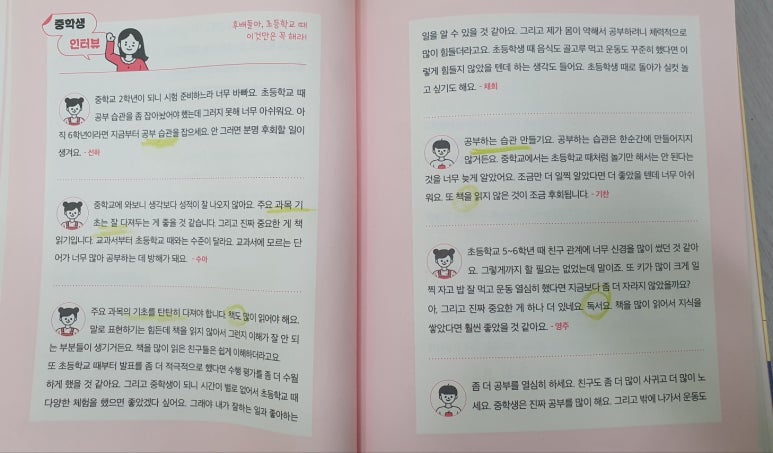 중학생
인터뷰
후배들아, 초등학교 때
이것만은 꼭 해라!
중학교 2학년이 되니 시험 준비하느라 너무 바빠요. 초등학교 때
공부 습관을 좀 잡아놨어야 했는데 그러지 못해 너무 아쉬워요. 아
직 6학년이라면 지금부터 공부 습관을 잡으세요. 안 그러면 분명 후회할 일이
생겨요. - 선하
중학교에 와보니 생각보다 성적이 잘 나오지 않아요. 주요 과목 기
초는 잘 다져두는 게 좋을 것 같습니다. 그리고 진짜 중요한 게 책
읽기입니다. 교과서부터 초등학교 때와는 수준이 달라요. 교과서에 모르는 단
어가 너무 많아 공부하는 데 방해가 돼요. - 수아
주요 과목의 기초를 탄탄히 다져야 합니다. 책도 많이 읽어야 해요.
말로 표현하기는 힘든데 책을 읽지 않아서 그런지 이해가 잘 안 되
는 부분들이 생기거든요. 책을 많이 읽은 친구들은 쉽게 이해하더라고요.
또 초등학교 때부터 발표를 좀 더 적극적으로 했다면 수행 평가를 좀 더 수월
하게 했을 것 같아요. 그리고 중학생이 되니 시간이 별로 없어서 초등학교 때
다양한 체험을 했으면 좋았겠다 싶어요. 그래야 내가 잘하는 일과 좋아하는
일을 알 수 있을 것 같아요. 그리고 제가 몸이 약해서 공부하려니 체력적으로
많이 힘들더라고요. 초등학생 때 음식도 골고루 먹고 운동도 꾸준히 했다면 이
렇게 힘들지 않았을 텐데 하는 생각도 들어요. 초등학생 때로 돌아가 실컷 놀
고 싶기도 해요. - 채희
공부하는 습관 만들기요. 공부하는 습관은 한순간에 만들어지지
않거든요. 중학교에서는 초등학교 때처럼 놀기만 해서는 안 된다는
것을 너무 늦게 알았어요. 조금만 더 일찍 알았다면 더 좋았을 텐데 너무 아쉬
워요. 또 책을 읽지 않은 것이 조금 후회됩니다. - 기찬
초등학교 5~6학년 때 친구 관계에 너무 신경을 많이 썼던 것 같아
요. 그렇게까지 할 필요는 없었는데 말이죠. 또 키가 많이 크게 일
찍 자고 밥 잘 먹고 운동 열심히 했다면 지금보다 좀 더 자라지 않았을까요?
아, 그리고 진짜 중요한 게 하나 더 있네요. 독서요. 책을 많이 읽어서 지식을
쌓았다면 훨씬 좋았을 것 같아요. - 영주
좀 더 공부를 열심히 하세요. 친구도 좀 더 많이 사귀고 더 많이 노
세요. 중학생은 진짜 공부를 많이 해요. 그리고 밖에 나가서 운동도